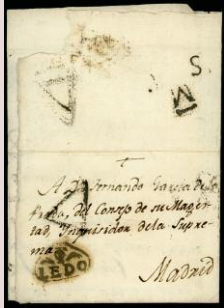 S.
M
A Dn Fernando Garcia de la
Prada, del Consejo de su Mages-
tad, Inquisidor dela Supre-
ma
LEDO
Madrid